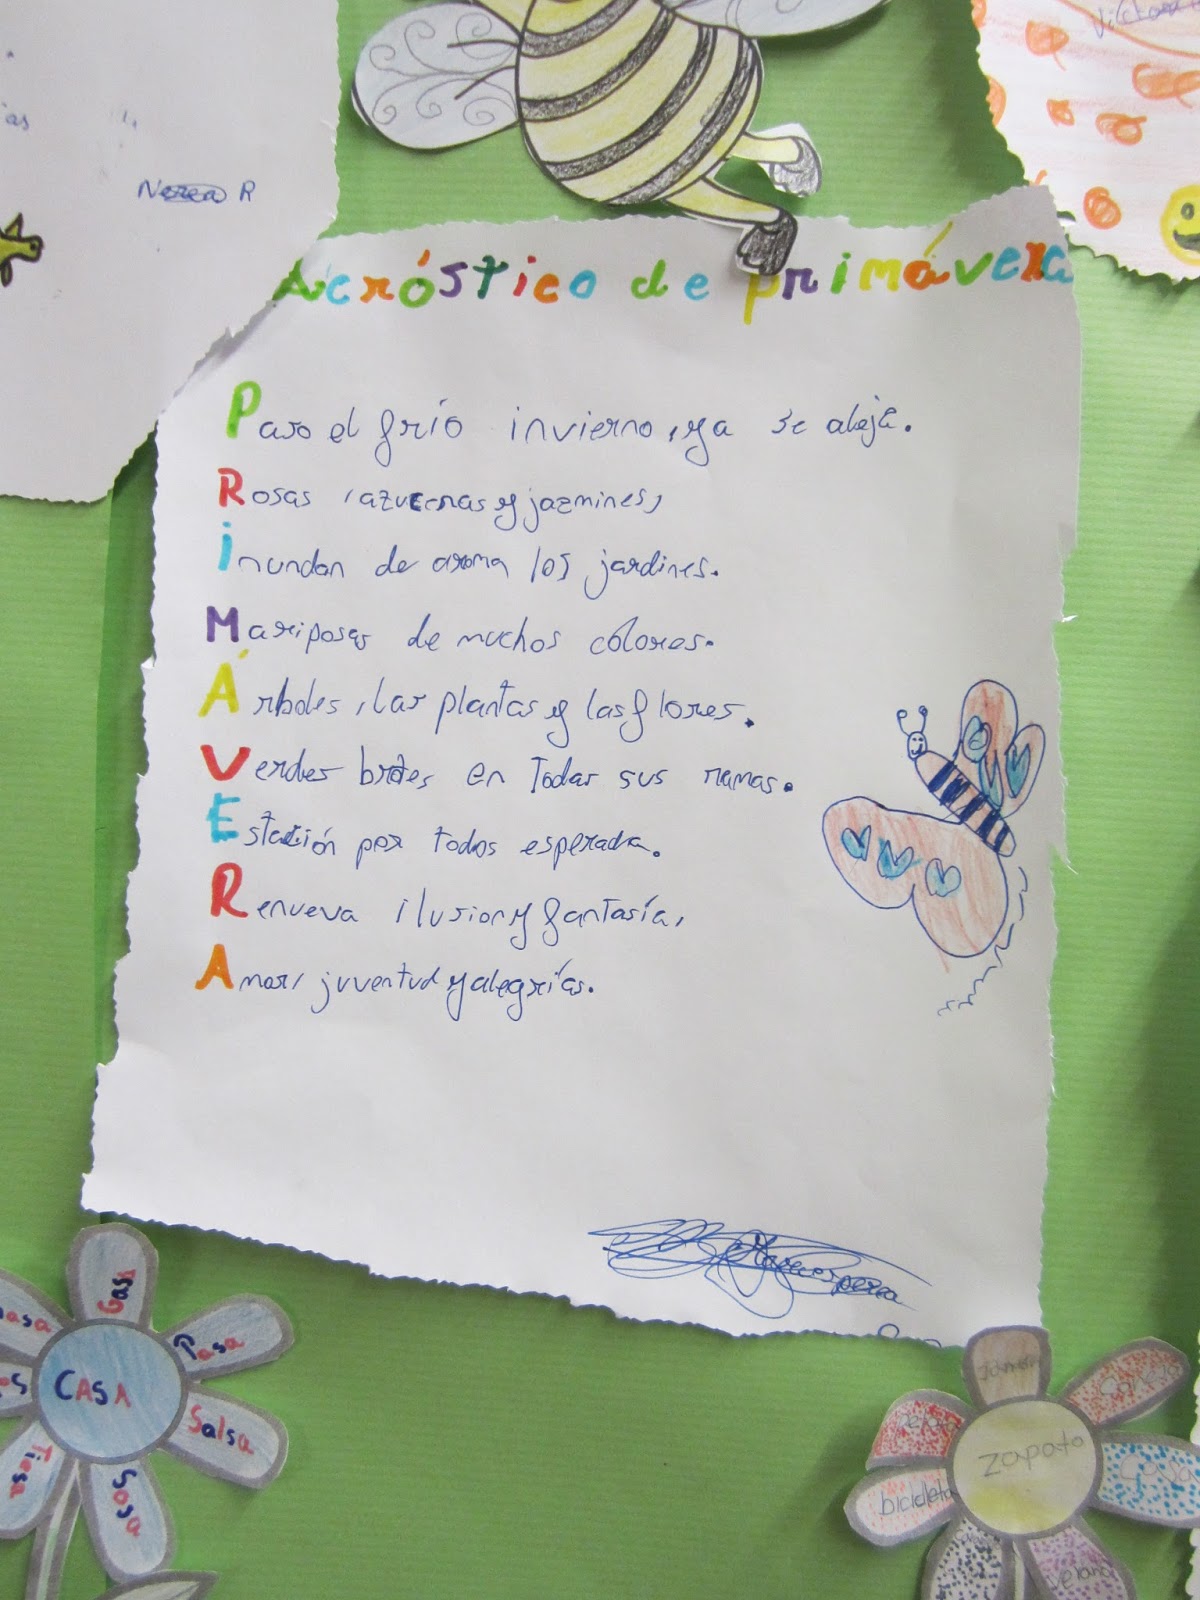 Nerea R
Acróstico de primávera
Paso el frío invierno, ya se aleja.
Rosas, azucenas y jazmines,
inundan de aroma los jardines.
Mariposas de muchos colores.
Árboles, las plantas y las flores.
Verdes brotes en todas sus ramas.
Estación por todos esperada.
Renueva ilusion y fantasía,
Amor, juventud y alegrías.
CASA
Gasa
Pasa
Salsa
Sosa
Tiesa
zapato
Jamón
Cereza
Casa
verano
bicicleta
pelota